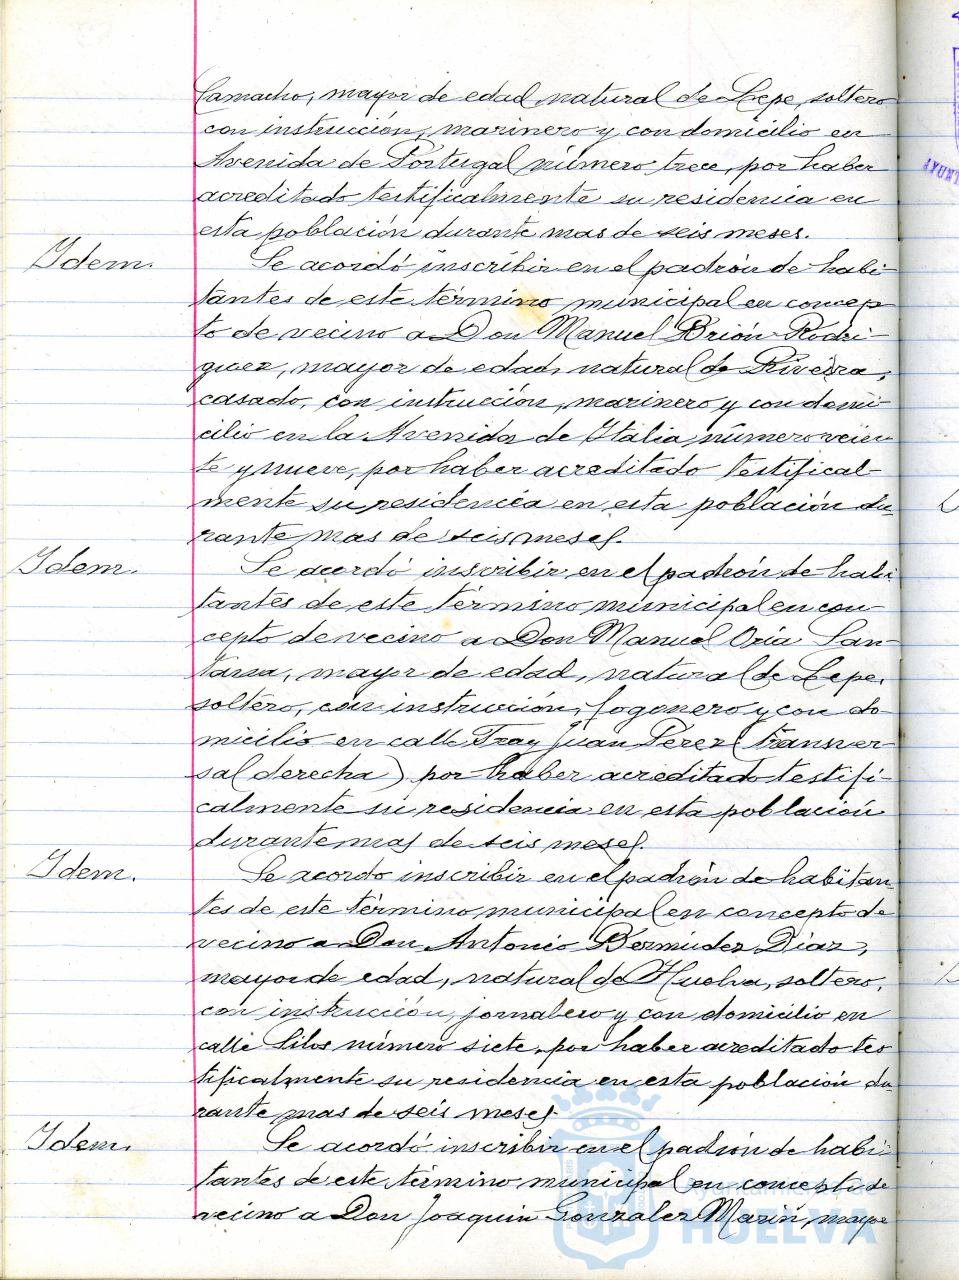 Camacho, mayor de edad natural de Lepe, soltero
con instrucción, marinero y con domicilio en
Avenida de Portugal número trece, por haber
acreditado testificalmente su residencia en
esta población durante mas de seis meses.
Idem.
Se acordó inscribir en el padrón de habi-
tantes de este término municipal en concep
to de vecino a Don Manuel Brión Rodri-
guez, mayor de edad, natural de Riveira,
casado, con instrucción, marinero y con domi-
cilio en la Avenida de Italia número vein
te y nueve, por haber acreditado testifical-
mente su residencia en esta población du-
rante mas de seis meses.
Idem.
Se acordó inscribir en el padrón de habi
tantes de este término municipal en con-
cepto de vecino a Don Manuel Oria San-
tana, mayor de edad, natural de Lepe,
soltero, con instrucción, fogonero y con do-
micilio en calle Fray Juan Perez (transver-
sal derecha) por haber acreditado testifi-
calmente su residencia en esta población
durante mas de seis meses.
Idem.
Se acordo inscribir en el padrón de habitan-
tes de este término municipal en concepto de
vecino a Don Antonio Bermúdez Díaz,
mayor de edad, natural de Huelva, soltero,
con instrucción, jornalero y con domicilio en
calle Silos número siete, por haber acreditado tes
tificalmente su residencia en esta población du-
rante mas de seis meses
Idem.
Se acordó inscribir en el padrón de habi-
tantes de este término municipal en concepto de
vecino a Don Joaquin Gonzalez Marin, mayor
Ayuntamiento de
HUELVA